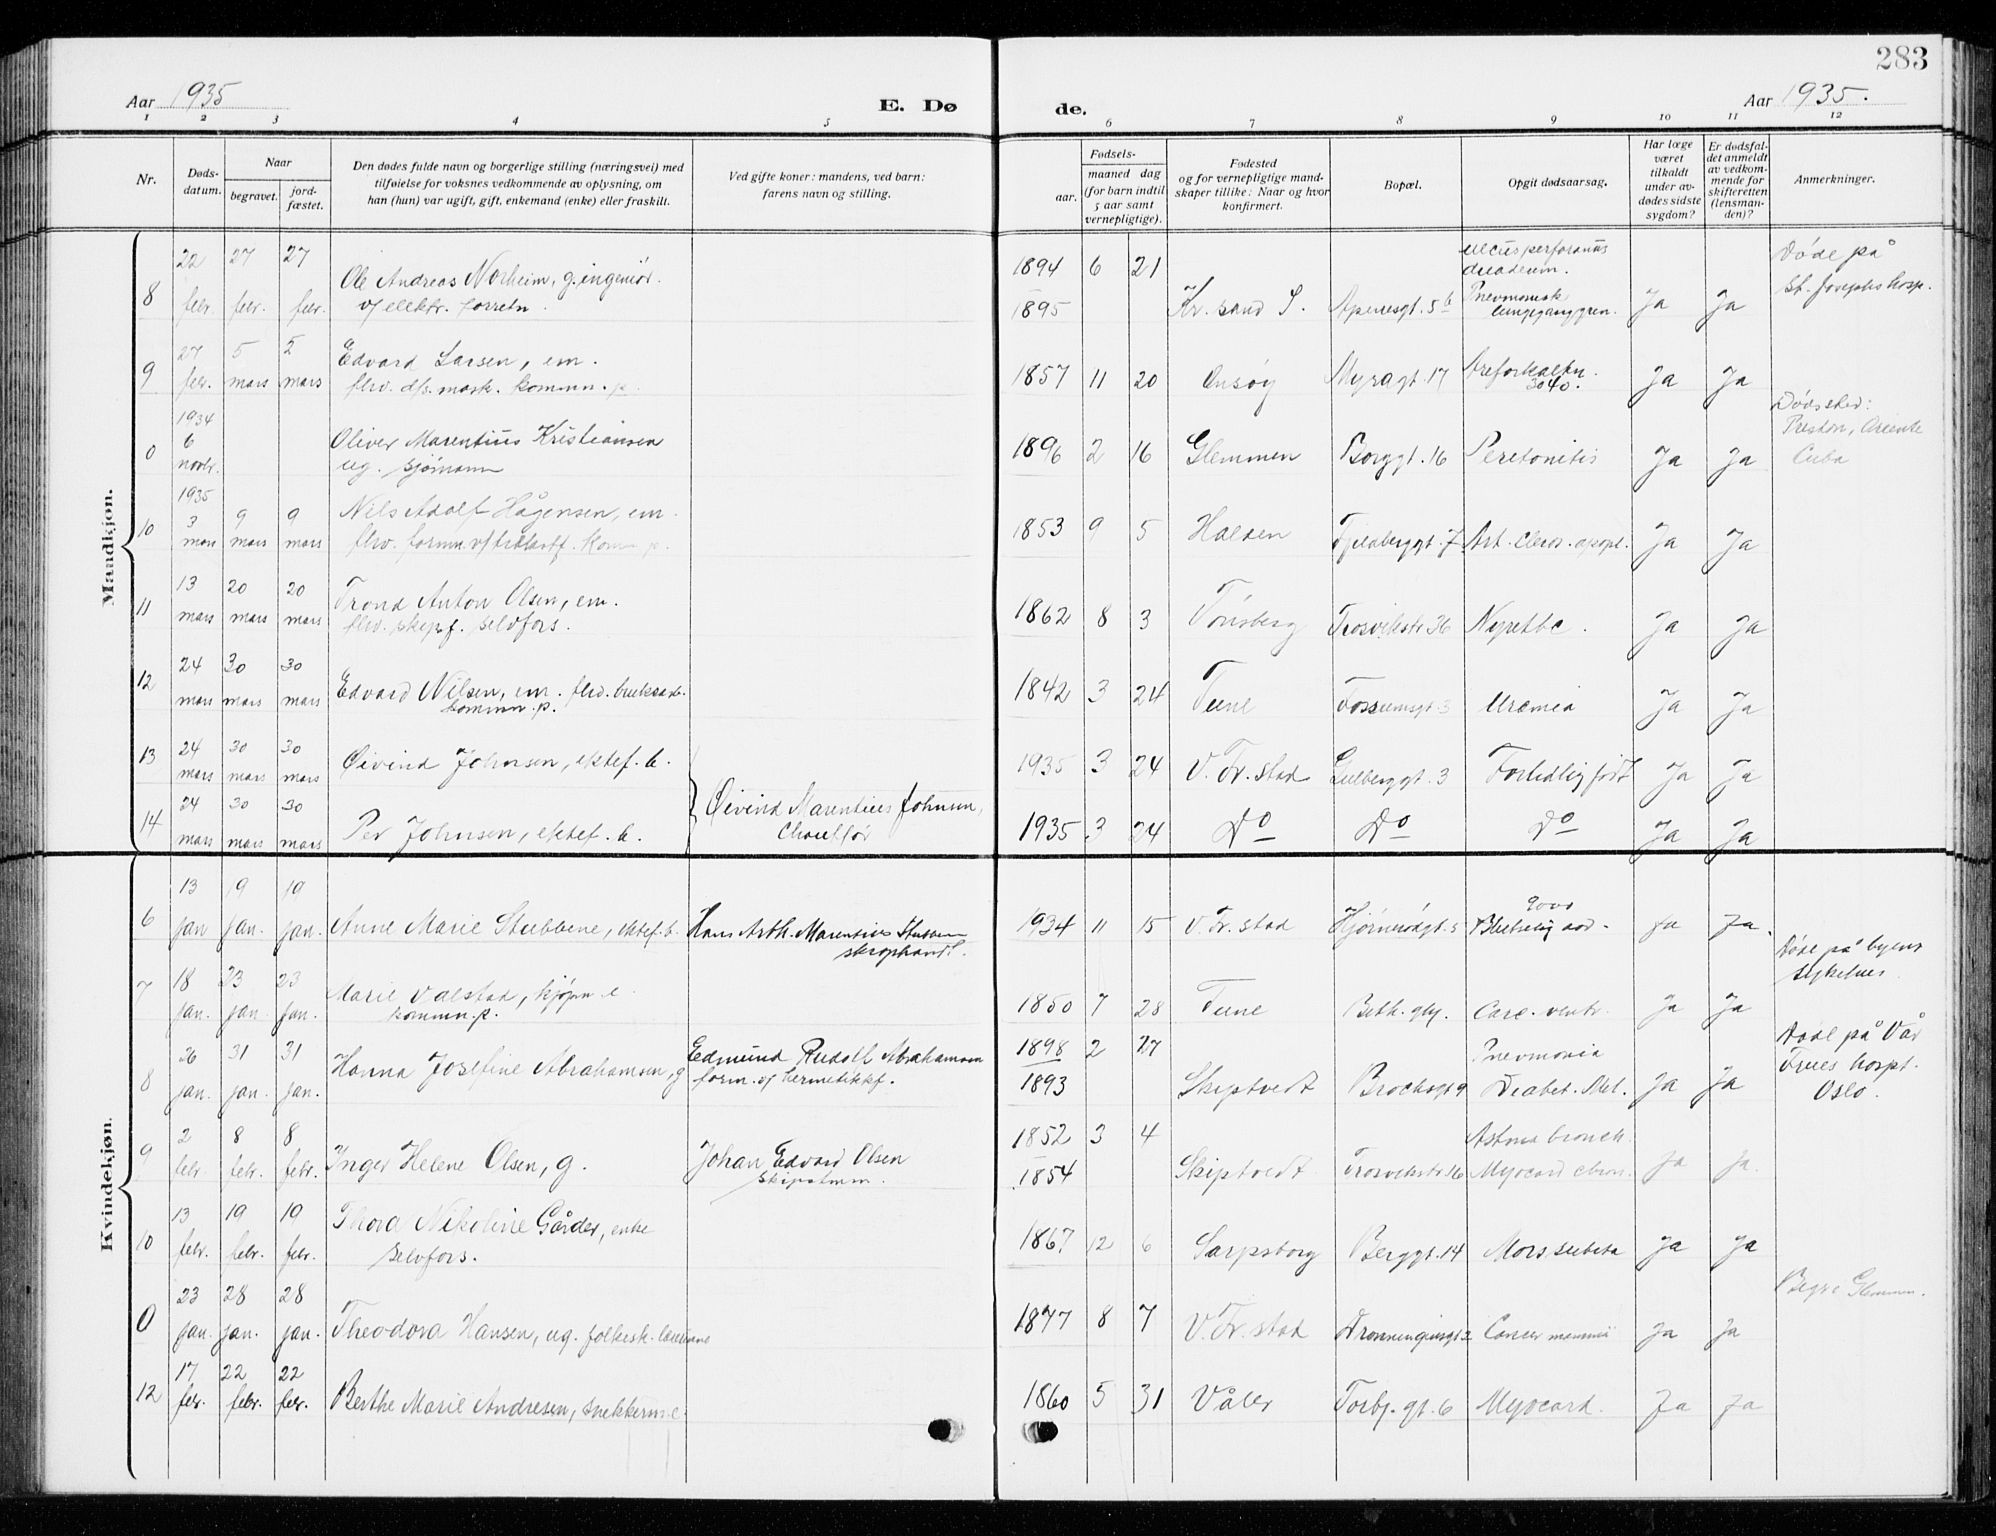 283
Aar 1935
E. Dø
de.
Aar 1935.
1 2 3 4 5 6 7 8 9 10 11 12
Nr.
Døds-
datum.
Naar
begravet.
jord-
fæstet.
Den dødes fulde navn og borgerlige stilling (næringsvei) med
tilføielse for voksnes vedkommende av oplysning, om
han (hun) var ugift, gift, enkemand (enke) eller fraskilt.
Ved gifte koner: mandens, ved barn:
farens navn og stilling.
Fødsels-
aar.
maaned dag
(for barn indtil
5 aar samt
vernepligtige).
Fødested
og for vernepligtige mand-
skaper tillike: Naar og hvor
konfirmert.
Bopæl.
Opgit dødsaarsag.
Har læge
været
tilkaldt
under av-
dødes sidste
sygdom?
Er dødsfal-
det anmeldt
av vedkom-
mende for
skifteretten
(lensman-
den)?
Anmerkninger.
Mandkjøn.
8 22 febr. 27 febr. 27 febr.
Ole Andreas Norheim, g. ingeniør.
v/ elektr. forretn.
1894 6 21
1895 Kr. sand S. Apenesgt. 5b
ulcus perforatus
duodenum.
Ja Ja
Døde på
St. Josephs hosp.
9 27 febr. 5 mars 5 mars
Edvard Larsen, em.
flrv. d/s. mask. kommn. p.
1857 11 20 Onsøy Myragt. 17 Areforkalkn.
3040.
Ja Ja
0 1934 6 novbr.
Oliver Marentius Kristiansen
ug. sjømann
1896 2 16 Glemmen Borggt. 16 Peretonitis Ja Ja
Dødssted:
Preston, Oriente
Cuba
10 1935 3 mars 9 mars 9 mars
Nils Adolf Hågensen, em.
1853 9 5 Halden Fjeldberggt. 7 Art. Cleros. apopl. Ja Ja
11 13 mars 20 mars 20 mars
Trond Anton Olsen, em.
flrv. skipsf. selvfors.
1862 8 3 Tønsberg Trosvikstr. 36 Ja Ja
12 24 mars 30 mars 30 mars
Edvard Nilsen, em. flrv. bruksarb.
kommn. p.
1842 3 24 Tune Fossumsgt. 3 Uremia Ja Ja
13 24 mars 30 mars 30 mars
Øivind Johnsen, ektef. b.
1935 3 24 V. Fr. stad Gulberggt. 3 For tidlig født Ja Ja
14 24 mars 30 mars 30 mars
Per Johnsen, ektef. b.
Øivind Marentius Johnsen,
Chauffør
1935 3 24 Do Do Do Ja Ja
Kvindekjøn.
6 13 jan 19 jan. 19 jan.
Anne Marie Stubbene, ektef. b. Hans Arth. Marentius
skraphandl.
1934 11 15 V. Fr. stad Ja Ja.
7 18 jan. 23 jan. 23 jan.
Marie Valstad, kjøpm. e.
kommn. p.
1850 7 28 Tune Beth. Carc. ventr. Ja Ja
Døde på byens
sykehus
8 26 jan. 31 jan. 31 jan.
Hanna Josefine Abrahamsen, g
Edmund Rudolf Abrahamsen
form. v/ hermetikkf.
1898 2 27
1893 Skiptvedt Brochsgt 9
Pnevmonia
Diabet. Mel.
Ja Ja
Døde på Vår
Frues hospt.
Oslo.
9 2 febr. 8 febr. 8 febr.
Inger Helene Olsen, g.
Johan Edvard Olsen
skipstmm.
1852 3 4
1854 Skiptvedt Trosvikstr. 16
Astma bronch.
Myocard chron.
Ja Ja
10 13 febr. 19 febr. 19 febr.
Thora Nikoline Gårder, enke
selvfors.
1867 12 6 Sarpsborg Berggt. 14 Mors subita Ja Ja
0 23 jan. 28 jan. 28 jan.
Theodora Hansen, ug. folkesk. lærerinne
1877 8 7 V. Fr. stad Dronningensgt 2 Cancer mammæ Ja Ja
Begr. Glemmn.
12 17 febr. 22 febr. 22 febr.
Berthe Marie Andresen, snekkerm. e.
1860 5 31 Våler Torbj. gt. 6 Myocard. Ja Ja